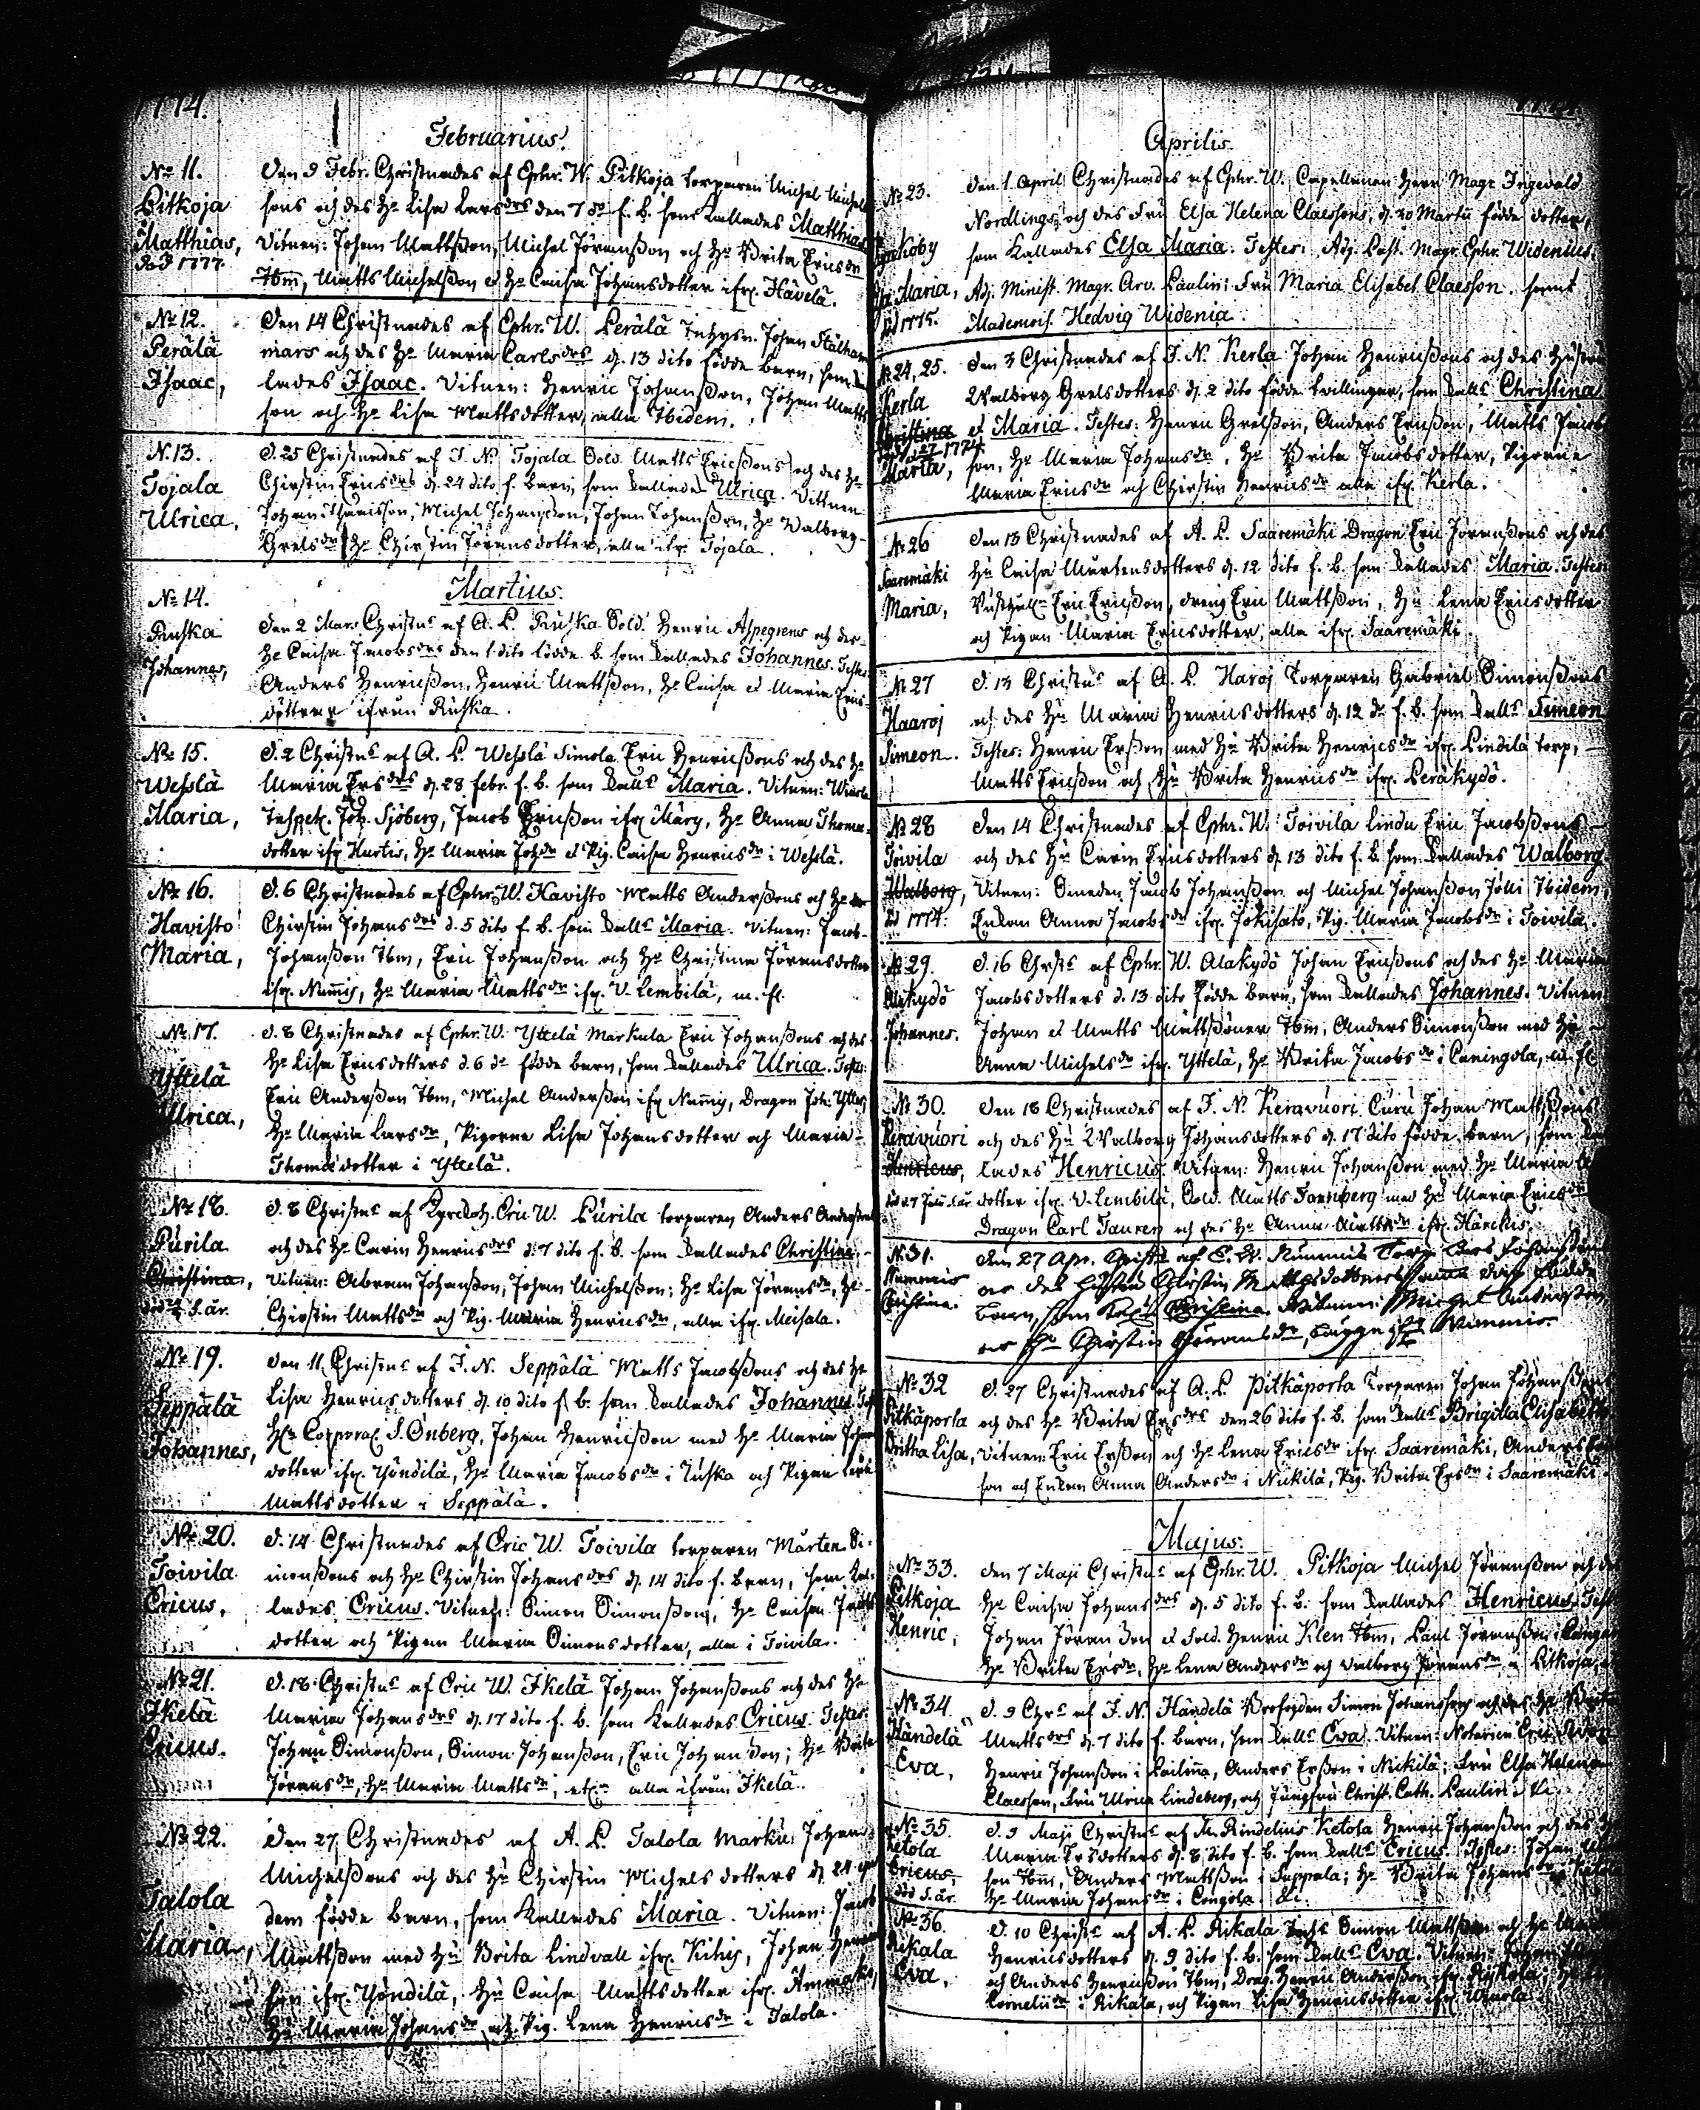 1774.
Februarius.
No 11.
Pitkoja
Matthias,
Den 9 Febr. Christnades af Ephr. W. Pitkoja torparen Michel Michels
sons och des Ha Lisa Larsdrs den 7 do f. b. som kallades Matthias
Vitnen: Johan Mattsson, Michel Jöransson och Ha Brita Ericsdr
Ibm, Matts Michelsson et Ha Caisa Johansdotter ifr. Hävelä.
No 12.
Perälä
Isaac,
Den 14 Christnades af Ephr. W. Perälä Inhysn. Johan Stålham
mars och des Ha Maria Carlsdrs d. 13 dito födde barn, som kal
lades Isaac. Vitnen: Henric Johansson, Johan Matts
son och Ha Lisa Mattsdotter, alla Ibidem.
N. 13.
Tojala
Ulrica,
D. 25 Christnades af J. N. Tojala Sold. Matts Ericssons och des Ha
Chirstin Ericsdrs d. 24 dito f. barn, som kallades Ulrica. Vittnen
Johan Michel Johansson, Johan Johansson, Ha Walborg
Grelsdr Ha Chirstin Jöransdotter, alla ifr. Tojala.
Martius.
No 14.
Ruska
Johannes,
Den 2 Mar. Christns af A. L. Ruska Sold. Henric Aspegrens och des
Ha Caisa Jacobsdrs den 1 dito födde b. som kallades Johannes. Testes
Anders Henricsson, Henric Mattsson, Ha Caisa et Maria Erics
döttrar ifrån Ruska.
No 15.
Wesslä
Maria,
D. 2 Christns af A. L. Wesslä Simola Eric Henricssons och des Ha
Maria Ersdrs d. 28 febr. f. b. som kalls Maria. Vitnen:
Inspekt. Joh. Sjöberg, Jacob Ericsson ifr. Märy, Ha Anna Thomæ
dotter ifr. Hurtis, Ha Maria Johdr et Pig. Caisa Henricsdr i Wesslä.
No 16.
Havisto
Maria,
D. 6 Christnades af Ephr. W. Havisto Matts Anderssons och Ha
Chirstin Johansdrs d. 5 dito f. b. som kalls Maria. Vitnen: Jacob
Johansson Ibm, Eric Johansson och Ha Christina Jöransdotter
ifr. Numis, Ha Maria Mattsdr ifr. V. Lembilä, m. fl.
No 17.
Yttelä
Ulrica,
D. 8 Christnades af Ephr. W. Yttelä Markula Eric Johanssons och des
Ha Lisa Ericsdotters d. 6 do födde barn, som kallades Ulrica. Testes:
Eric Andersson Ibm, Michel Andersson ifr. Numis, Dragon Joh. Ytter,
Ha Maria Larsdr, Pigorne Lisa Johansdotter och Maria
Thomædotter i Yttelä.
No 18.
Purila
Christina,
död s. år.
D. 8 Christns af Eric W. Purila torparen Anders Anderssons
och des Ha Carin Henricsdrs d. 7 dito f. b. som kallades Christina.
Vitnen: Abram Johansson, Johan Michelsson; Ha Lisa Jöransdr, Ha
Chirstin Mattsdr och Pig. Maria Henricsdr, alla ifr. Meisala.
No 19.
Seppälä
Johannes,
Den 11 Christns af J. N. Seppälä Matts Jacobssons och des Ha
Lisa Henricsdotters d. 10 dito f. b. som kallades Johannes.
Hr Corporal S. Önberg, Johan Henricsson med Ha Maria Johans
dotter ifr. Yöndilä, Ha Maria Jacobsdr i Tuska och Pigan
Mattsdotter i Seppälä.
No 20.
Toivila
Ericus,
D. 14 Christnades af Eric W. Toivila torparen Mårten Si-
monssons och Ha Chirstin Johansdrs d. 14 dito f. barn, som kal-
lades Ericus. Vitnen: Simon Simonsson, Ha Caisa
dotter och Pigan Maria Simonsdotter, alla i Toivila.
No 21.
Ikelä
Ericus.
D. 18 Christns af Eric W. Ikelä Johan Johanssons och des Ha
Maria Johansdrs d. 17 dito f. b. som kallades Ericus. Testes:
Johan Simonsson, Simon Johansson, Eric Johansson; Ha Brita
Jöransdr, Ha Maria Mattsdr, etc. alla ifrån Ikelä.
No 22.
Talola
Maria,
Den 27 Christnades af A. L. Talola Marku Johan
Michelssons och des Hu Chirstin Michelsdotters d. 24
dem födde barn, som kallades Maria. Vitnen: Jacob
Mattsson med Hu Brita Lindvall ifr. Kihis, Johan Henrics
son ifr. Yöndilä, Hu Caisa Mattsdotter ifr. Ammakis,
Hu Maria Johansdr, och Pig. Lena Henricsdr i Talola.
Aprilis.
No 23.
Den 1 April Christnades af Ephr. W. Capellanen Herr Magr Ingevald
Nordlings och des Fru Elsa Helena Claessons, d. 20 Martii födde dotter,
som kallades Elsa Maria. Testes: Adj. Past. Magr. Ephr. Widenius
Maria, Adj. Minist. Magr. Arv. Paulin; Fru Maria Elisabet Claesson, samt
Mademois. Hedvig Widenia.
No 24, 25.
Kerla
Christina
Maria,
Den 3 Christnades af J. N. Kerla Johan Henricssons och des Hustru
Walborg Grelsdotters d. 2 dito födde tvillingar, som kalls Christina
et Maria. Testes: Henric Grelsson, Anders Ericsson, Matts Jacobs
son, Ha Maria Johansdr, Ha Brita Jacobsdotter, Pigorne
Maria Ericsdr och Chirstin Henricsdr alla ifr. Kerla.
No 26
Saaremäki
Maria,
Den 13 Christnades af A. L. Saaremäki Dragon Eric Jöranssons och des
Hu Caisa Mårtensdotters d. 12 dito f. b. som kallades Maria. Testes
Rusthålln Eric Ericsson, dreng Eric Mattsson, Hu Lena Ericsdotter
och Pigan Maria Ericsdotter, alla ifr. Saaremäki.
No 27
Haaroj
Simeon.
D. 13 Christns af A. L. Haroj Torparen Gabriel Simonssons
och des Hu Maria Henricsdotters d. 12 do f. b. som kalls Simeon
Testes: Henric Ersson med Hu Brita Henricsdr ifr. Lindilä torp,
Matts Ericsson och Hu Brita Henricsdr ifr. Peräkydö.
No 28
Toivila
Walborg,
1774.
Den 14 Christnades af Ephr. W. Toivila Lindu Eric Jacobssons
och des Hu Carin Ericsdotters d. 13 dito f. b. som kallades Walborg.
Vitnen: Smeden Jacob Johansson och Michel Johansson Jölli Ibidem,
Enkan Anna Jacobsdr ifr. Jokisato, Pig. Maria Jacobsdr i Toivila.
No 29.
Alakydö
Johannes.
D. 16 Chrsts af Ephr. W. Alakydö Johan Ericssons och des Ha Maria
Jacobsdotters d. 13 dito födde barn, som kallades Johannes. Vitnen
Johan et Matts Mattssöner Ibm, Anders Simonsson med Ha
Anna Michelsdr ifr. Yttelä, Ha Brita Jacobsdr i Caningola, m. fl.
No 30.
Keravuori
Henricus,
Den 18 Christnades af J. N. Keravuori Curu Johan Mattssons
och des Hu Walborg Johansdotters d. 17 dito födde barn, som kal
lades Henricus. Vitnen: Henric Johansson med Ha Maria
dotter ifr. V. Lembilä, Sold. Matts Tannberg med Ha Maria Ericsdr
Dragon Carl Tauren och des Ha Anna Mattsdr ifr. Härikis.
N. 31.
Nummis
Christina.
Den 27 Apr. af E. W. Nummis Torp. Lars Johansson
och des Hustru Chirstin Mattsdotters samma dag födde
barn, som Christina. Vitnen: Michel Andersson
och Ha Chirstin Göransdr, begge ifr. Nummis.
No 32
Pitkäporta
Britha Lisa,
D. 27 Christnades af A. L. Pitkäporta Torparen Johan Johanssons
och des Ha Brita Ersdrs den 26 dito f. b. som kalls Brigitta Elisabeth
Vitnen: Eric Ersson och Ha Lena Ericsdr ifr. Saaremäki, Anders
son och Enkan Anna Andersdr i Nickilä, Pig. Brita Ersdr i Saaremäki.
Majus.
No 33.
Pitkoja
Henric,
Den 7 Maji Christns af Ephr. W. Pitkoja Michel Jöransson och des
Ha Caisa Johansdrs d. 5 dito f. b. som kallades Henricus. Test
Johan Jöransson et Sold. Henric Klen Ibm, Paul Jöransson
Ha Brita Ersdr, Ha Lena Andersdr och Valborg Jöransdr i Pitkoja,
No 34.
Händelä
Eva,
D. 9 Chrs af J. N. Händelä Brofogden Simon Johansson och des Ha Brita
Mattsdrs d. 7 dito f. barn, som kalls Eva. Vitnen: Notarien Eric
Henric Johansson i Anders Ersson i Nickilä; Fru Elsa Helena
Claesson, Fru Ulrica Lindeberg, och Jungfru Christ. Cath. Paulin
No 35.
Ketola
Ericus,
död s. år.
D. 9 Maji Christns af M. Rindelius Ketola Henric Johansson och des
Maria Ersdotters d. 8 dito f. b. som kalls Ericus. Testes: Johan
son Ibm, Anders Mattsson i Seppala; Ha Brita Johansdr
Ha Maria Johansdr i Congola. &c.
No 36.
Rikala
Eva,
D. 10 Christs af A. L. Rikala Simon Mattsson och Ha
Henricsdotters d. 9 dito f. b. som kalls Eva. Vitnen: Johan
och Anders Henricsson Ibm, Drag. Henric Andersson ifr.
Corneliidr i Rikala, och Pigan Lisa Henricsdotter ifr.